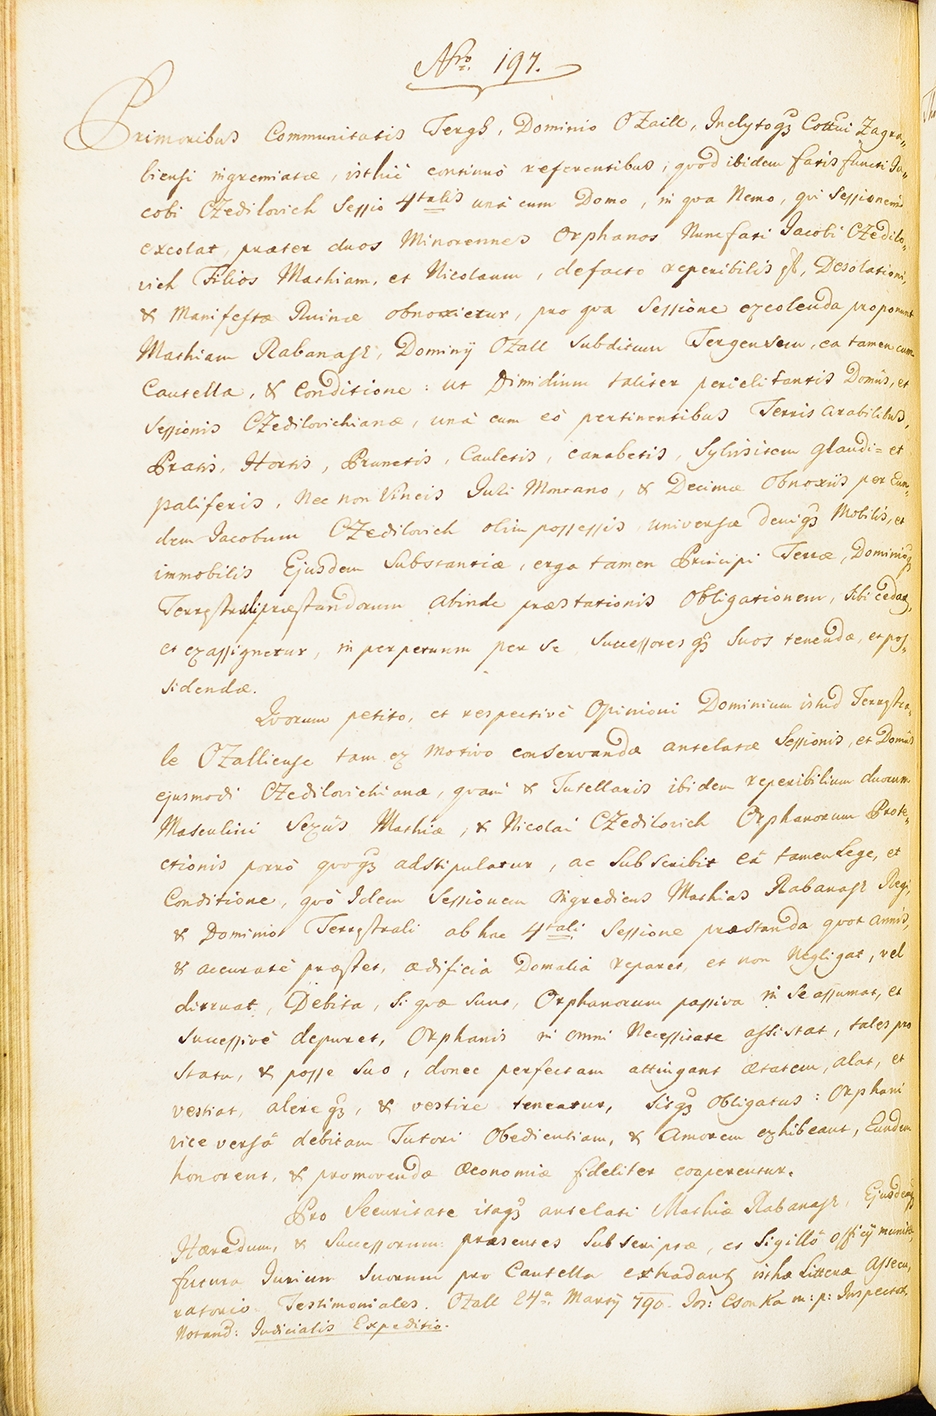 Nro. 197.
Primoribus Communitatis Tergh, Dominio OZaill, Inclytoq3 Cottui Zagra-
biensi ingremiatæ, isthic continuo referentibus, quod ibidem fatis functi Ja-
cobi CZedilovich Sessio 4talis una cum Domo, in qva Nemo, qvi Sessionem
excolat, præter duos Minorennes Orphanos Nunc fati Jacobi CZedilo-
vich Filios Mathiam, et Nicolaum, defacto reperibilis sit, Desolationi,
& manifestæ Ruinæ obnoxietur, pro qva Sessione excolenda proponunt
Mathiam Rabanasz, Dominÿ OZall Subditum Tergensem, ea tamen cum
Cautella, & Conditione: ut Dimidium taliter periclitantis Domus, et
Sessionis CZedilovichianæ, una cum eó pertinentibus Terris arabilibus,
Pratis, Hortis, Prunetis, Cauletis, canabetis, Sylvis item glandi= et
paliferis, Nec non Vineis Juri Montano, & Decimæ Obnoxiis per Eun-
dem Jacobum CZedilovich olim possessis, universæ deniq3 Mobilis, et
immobilis Ejusdem Substantiæ, erga tamen Principi Terræ, Dominioq3
Terrestrali præstandorum abinde præstationis Obligationem, sibi cedat,
et exassignetur, in perpetuum per se Successoresq3 Suos tenendæ, et pos-
sidendæ.
Qvorum petito, et respectivè Opinioni Dominium istud Terrestra-
le OZalliense tam ex motivo conservandæ antelatæ Sessionis, et Domûs
ejusmodi CZedilovichianæ, qvam & Tutellaris ibidem reperibilium duorum
Masculini Sexûs Mathiæ, & Nicolai CZedilovich Orphanorum Prote-
ctionis porrò qvoq3 adstipulatur, ac Subscribit eâ tamen Lege, et
Conditione, qvô Idem Sessionem ingrediens Mathias Rabanasz Regi,
& Dominio Terrestrali ab hac 4tali Sessione præstanda qvot annis,
& accuratè præstet, ædificia Domalia reparet, et non Negligat, vel
dirruat, Debita, si qvæ sunt, Orphanorum passiva in se assumat, et
Successivè depuret, Orphanis in omni Necessitate assistat, tales pro
statu, & posse suo, donec perfectam attingant ætatem, alat, et
vestiat, alereq3, & vestire teneatur, sitq3 obligatus: Orphani
vice versâ debitam Tutori Obedientiam, & Amorem exhibeant, Eundem
honorent, & promovendæ Œconomiæ fideliter cooperentur.
Pro Securitate itaq3 antelati Mathiæ Rabanasz, Ejusdemq3
Hæredum, & Successorum præsentes Subscriptæ, et Sigillô Officÿ munitæ,
futura Jurium Suorum pro Cautella extradantur isthæ Litteræ Assecu-
ratorio Testimoniales. OZall 24a Martÿ 790. Jos: CsonKa m:p: Inspector.
Notand: Judicialis Expeditio.